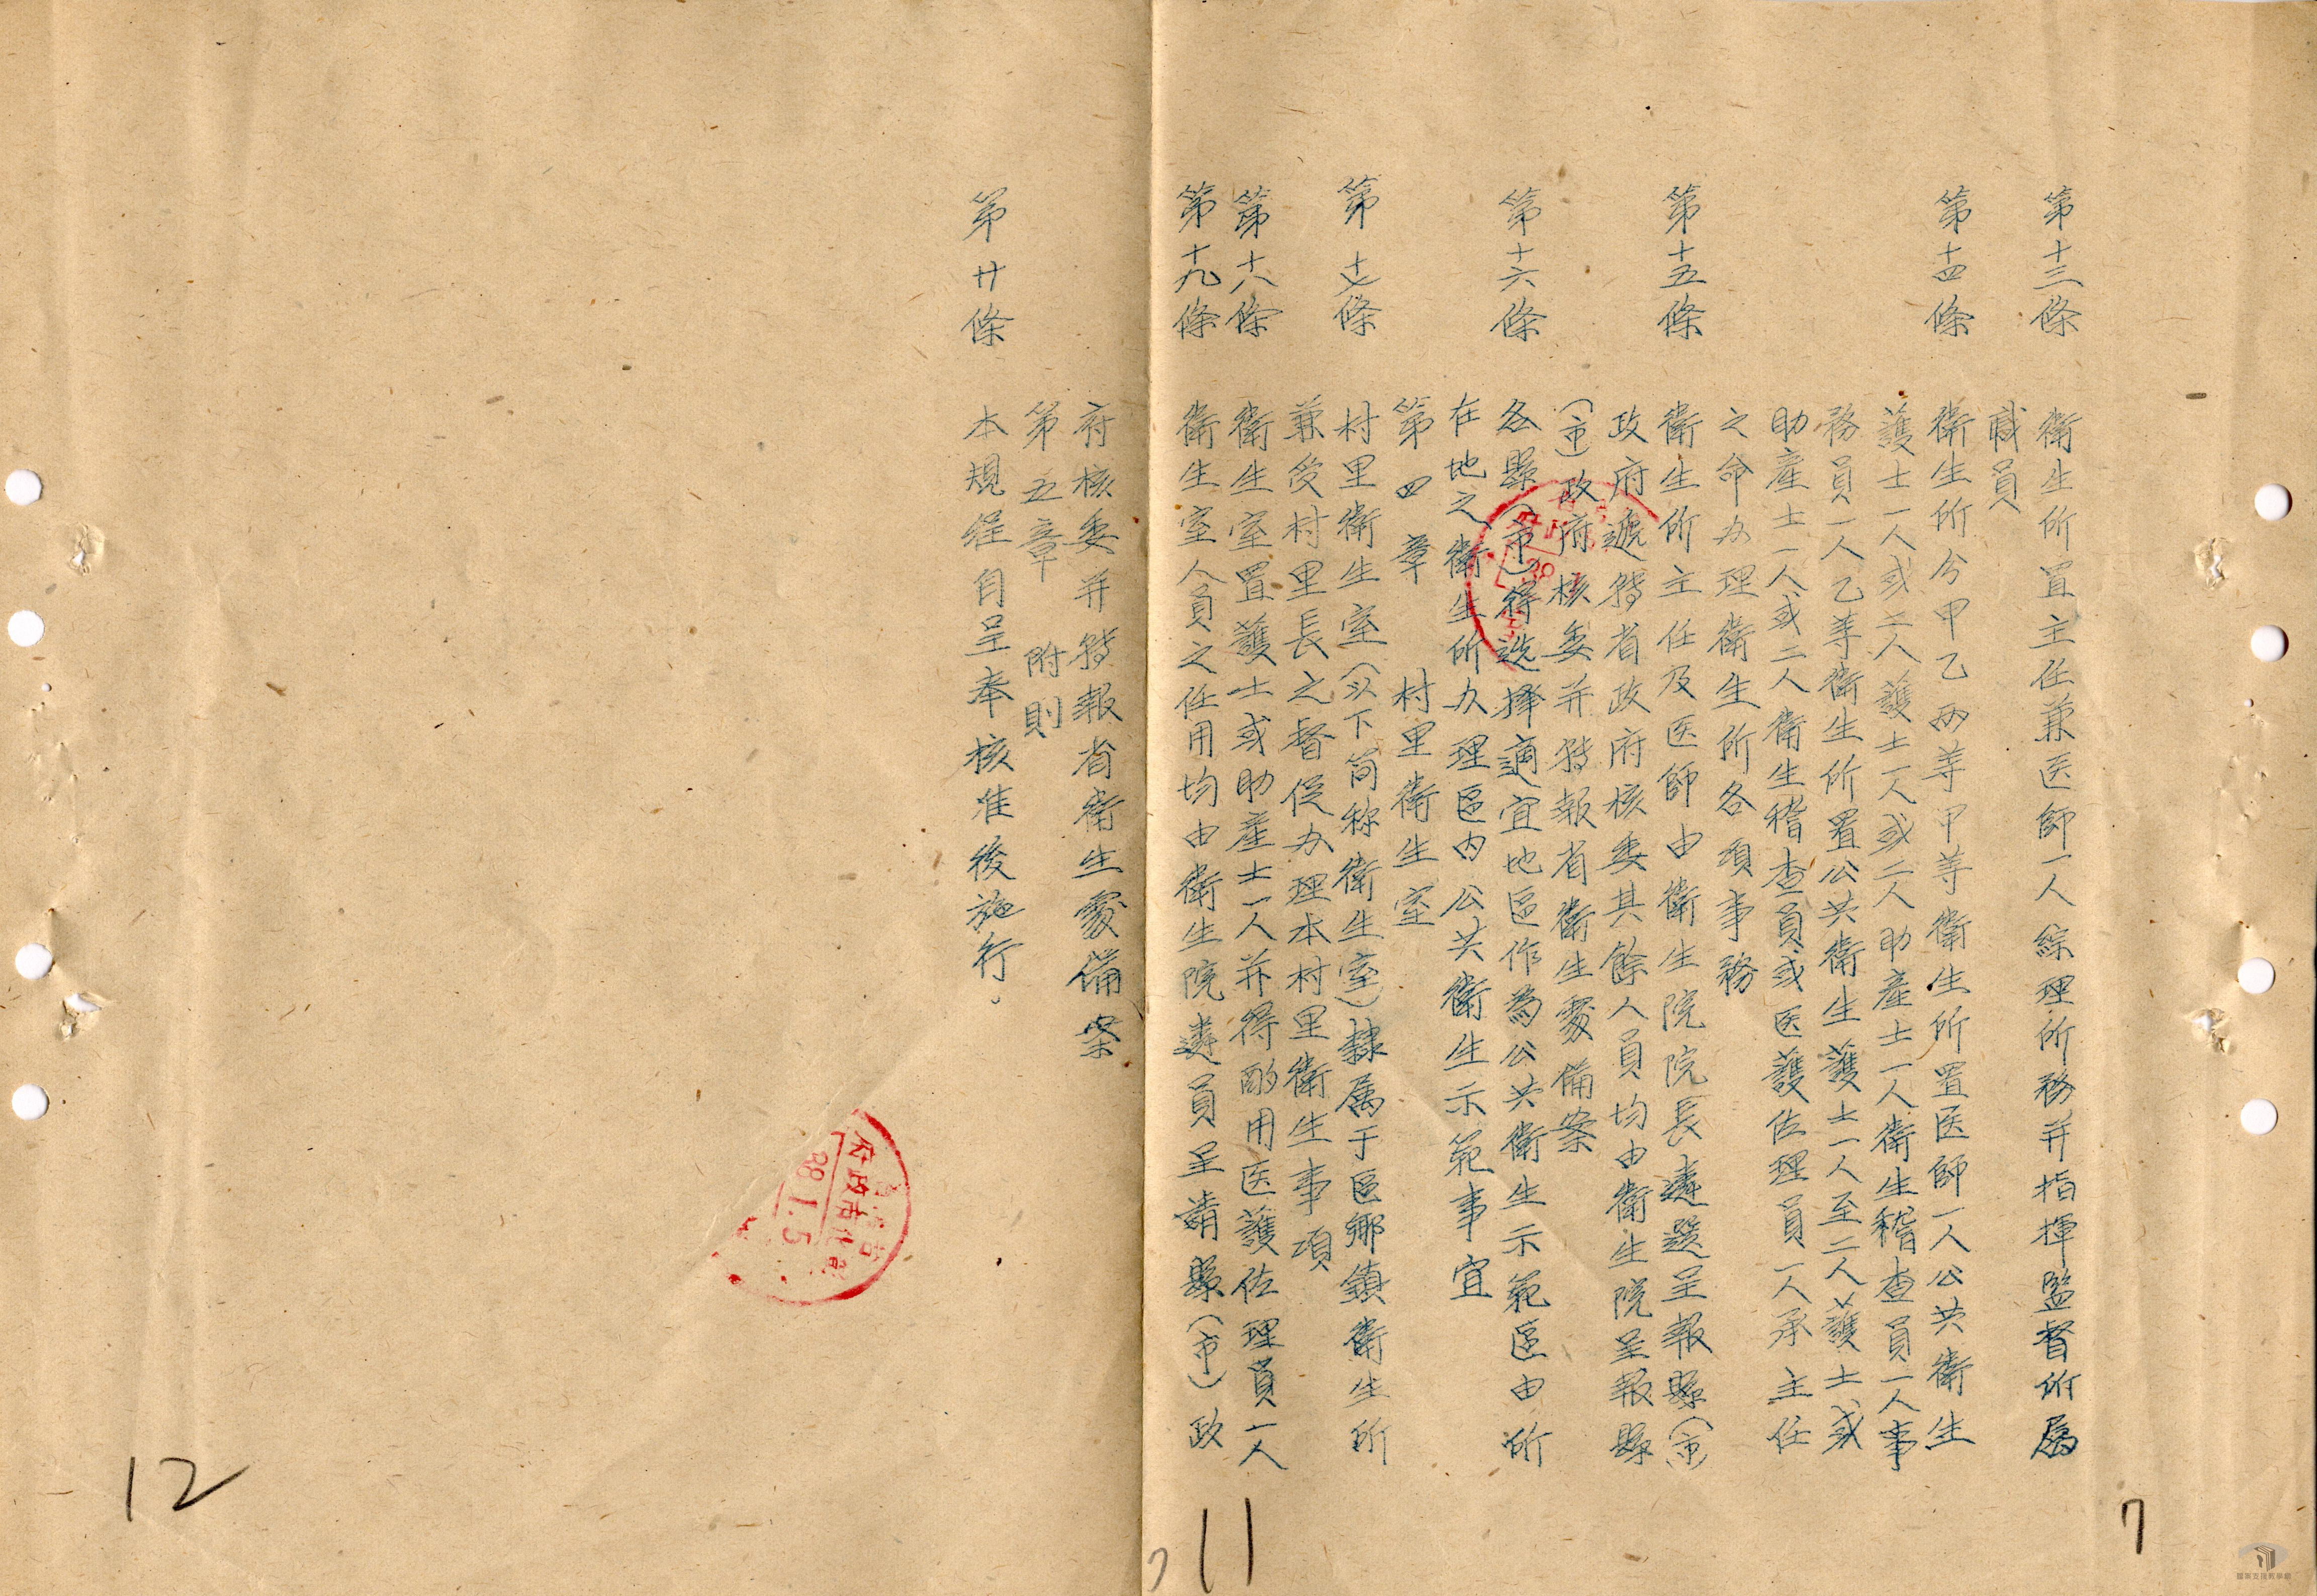 第十三條 衛生所置主任兼医師一人綜理所務并指揮監督所屬
職員
第十四條 衛生所分甲乙两等甲等衛生所置医師一人公共衛生
護士一人或二人護士一人或二人助產士一人衛生稽查員一人事
務員一人乙等衛生所置公共衛生護士一人至二人護士或
助產士一人或二人衛生稽查員或医護佐理員一人承主任
之命办理衛生所各項事務
第十五條 衛生所主任及医師由衛生院院長遴選呈報縣(市)
政府遞轉省政府核委其餘人員均由衛生院呈報縣
(市)政府核委并轉報省衛生處備案
第十六條 各縣(市)得选擇適宜地區作為公共衛生示範區由所
在地之衛生所办理區内公共衛生示範事宜
第四章 村里衛生室
第十七條 村里衛生室(以下简称衛生室)隸属于區鄉鎮衛生所
兼受村里長之督促办理本村里衛生事項
第十八條 衛生室置護士或助產士一人并得酌用医護佐理員一人
第十九條 衛生室人員之任用均由衛生院遴員呈請縣(市)政
府核委并轉報省衛生處備案
第五章 附則
第廿條 本規程自呈奉核准後施行。
府政市化彰
38.1.5
7
11
7
12